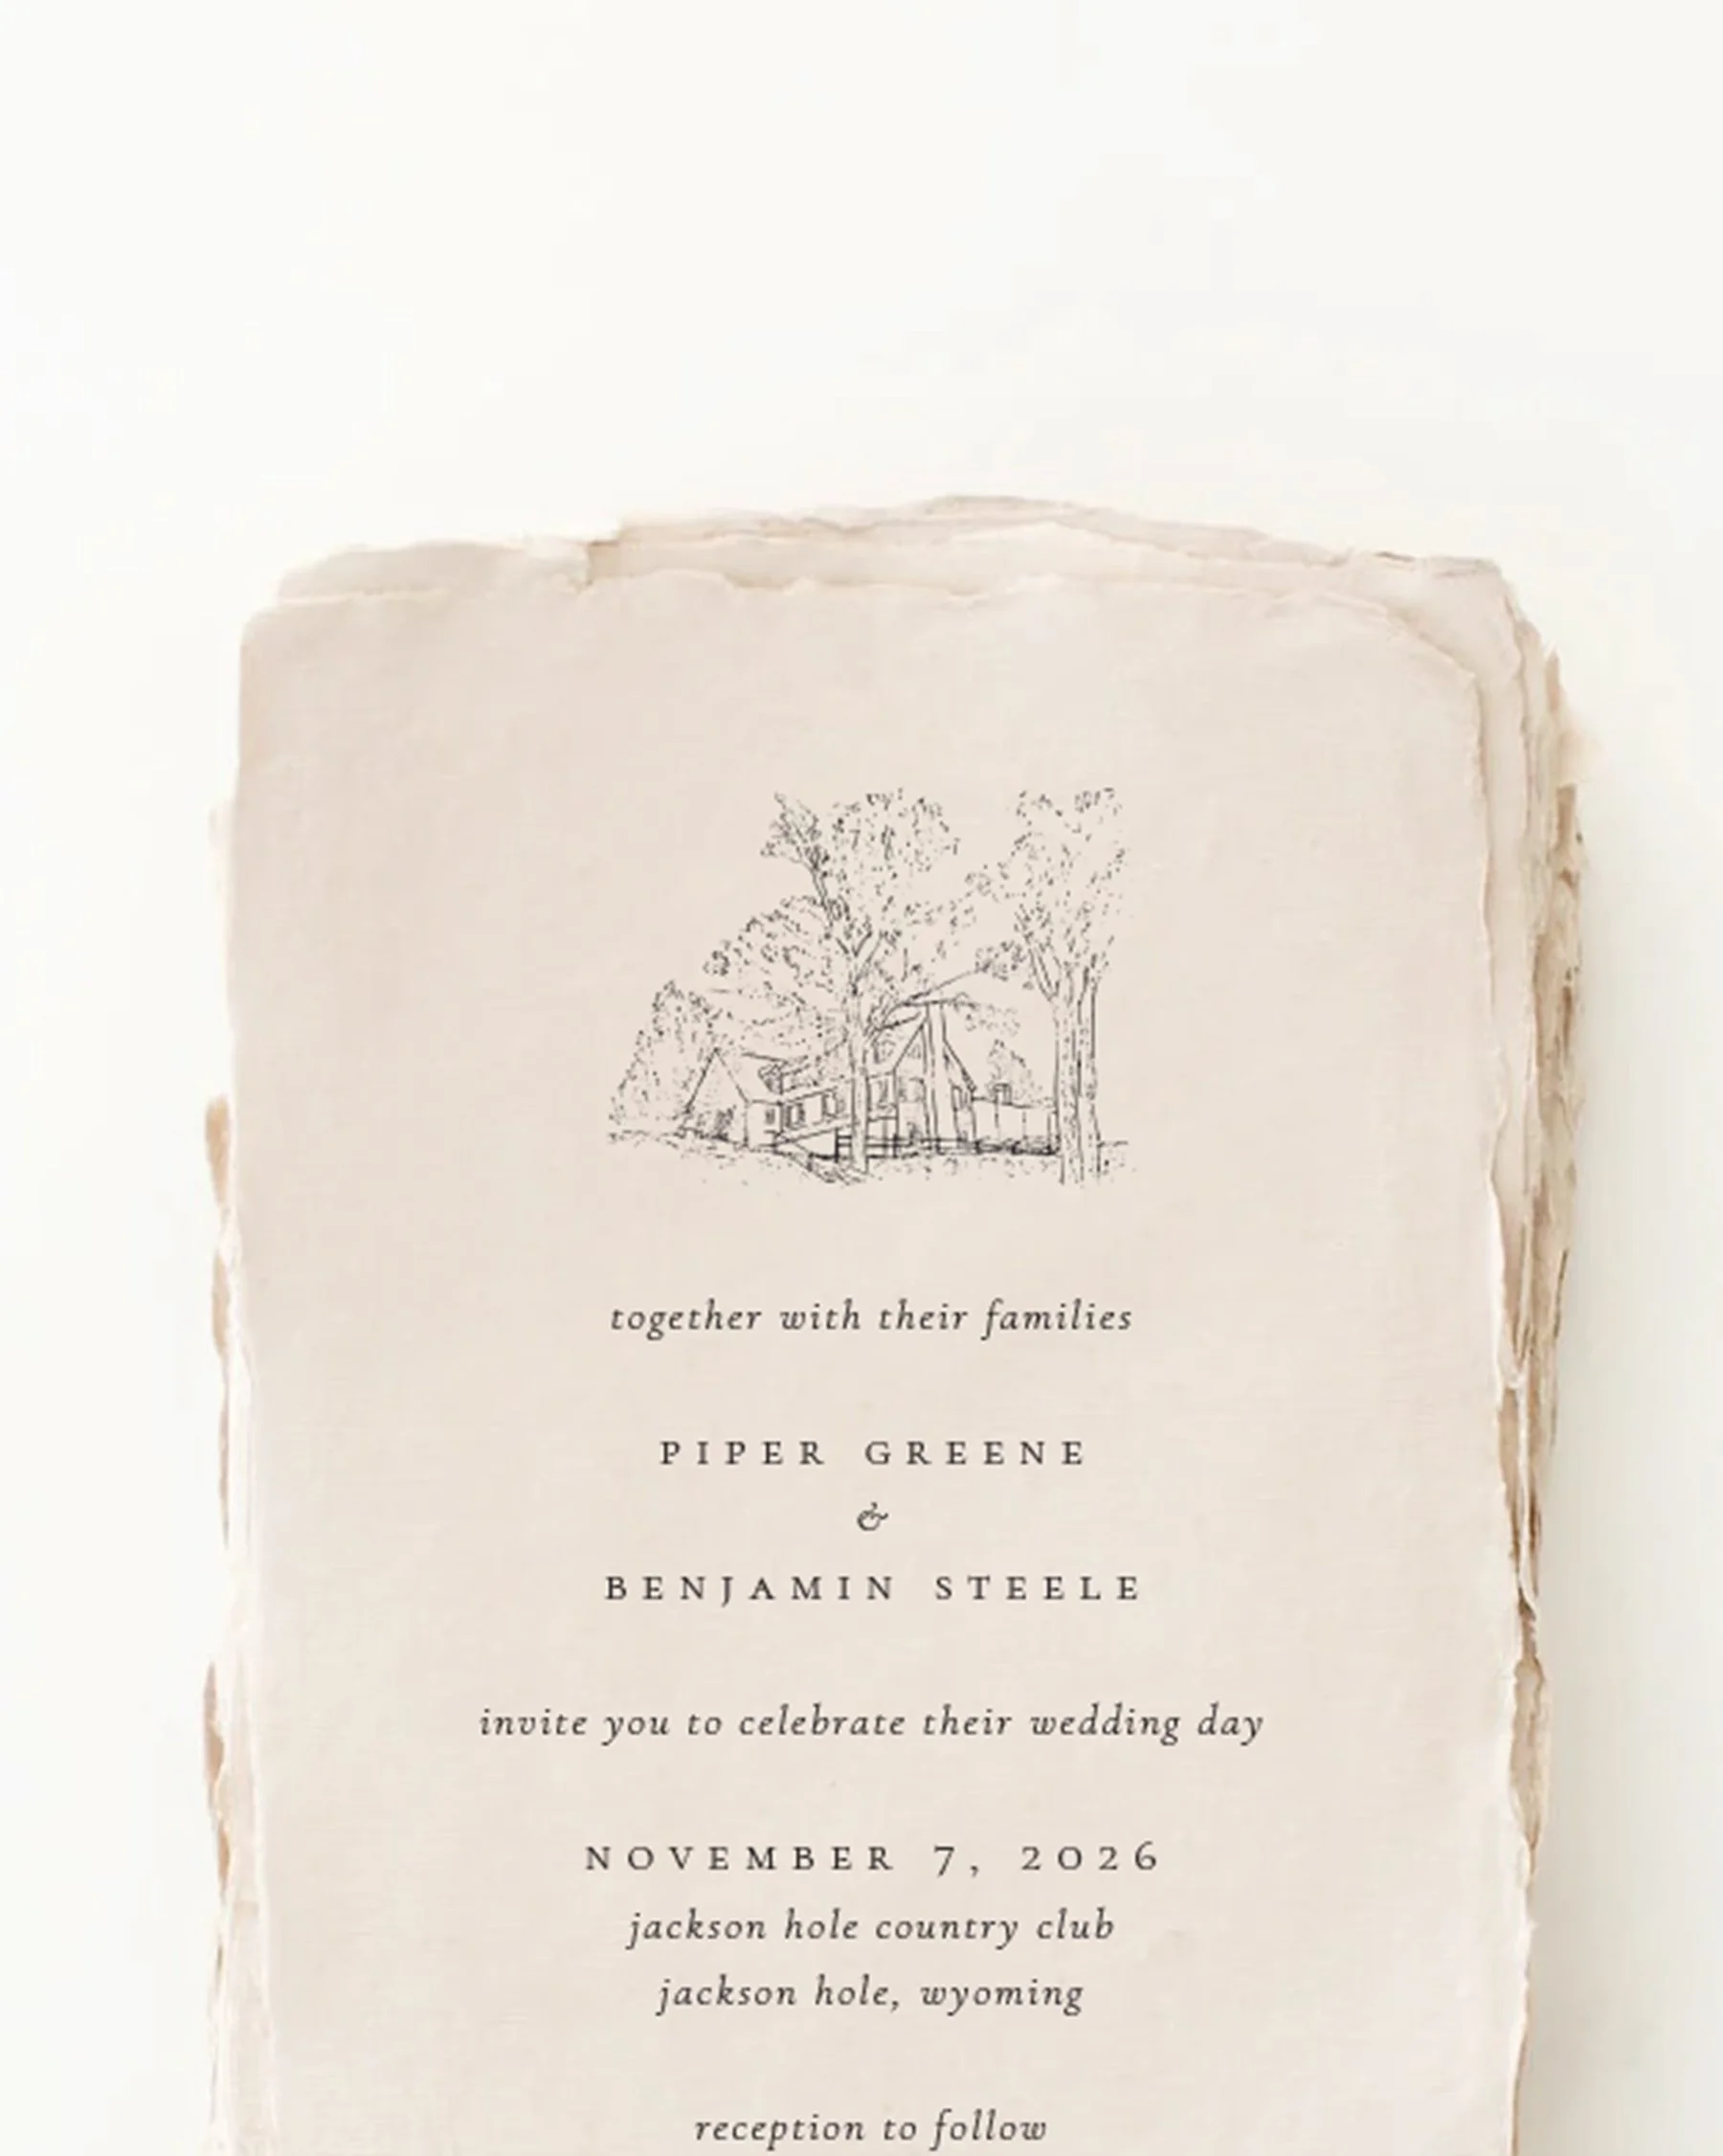 together with their families
PIPER GREENE
&
BENJAMIN STEELE
invite you to celebrate their wedding day
NOVEMBER 7, 2026
jackson hole country club
jackson hole, wyoming
reception to follow